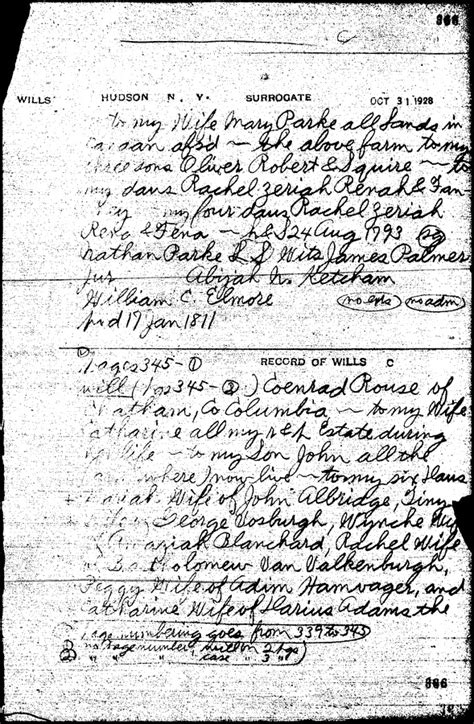 866
C
WILLS HUDSON N. Y. SURROGATE OCT 31 1928
to my Wife Mary Parke all lands in
Canaan afsd ~ the above farm to my
three sons Oliver Robert & Squire ~ to
my daus Rachel Zeriah Renah &
my four daus Rachel Zeriah
Rena & Fena ~ h&S 24 Aug 1793
Nathan Parke L S Wits James Palmer
jur Abijah N. Ketcham
William C. Elmore (no exrs) (no adm)
prd 17 Jan 1811
Pages 345-① RECORD OF WILLS C
will (pgs 345-②) Coenrad Rouse of
Chatham, Co Columbia ~ to my Wife
Catharine all my r&p Estate during
life ~ to my Son John all the
farm where) now live ~ to my six daus
Wife of John Albridge,
George Vosburgh, Wynche Wife
of Amaziah Blanchard, Rachel Wife
of Bartholomew Van Valkenburgh,
Peggy Wife of Adim Hamvager, and
Catharine Wife of Darius Adams the
page numbering goes from 339 to 345
no page number written 2 pgs
" " " case " 3 "
866